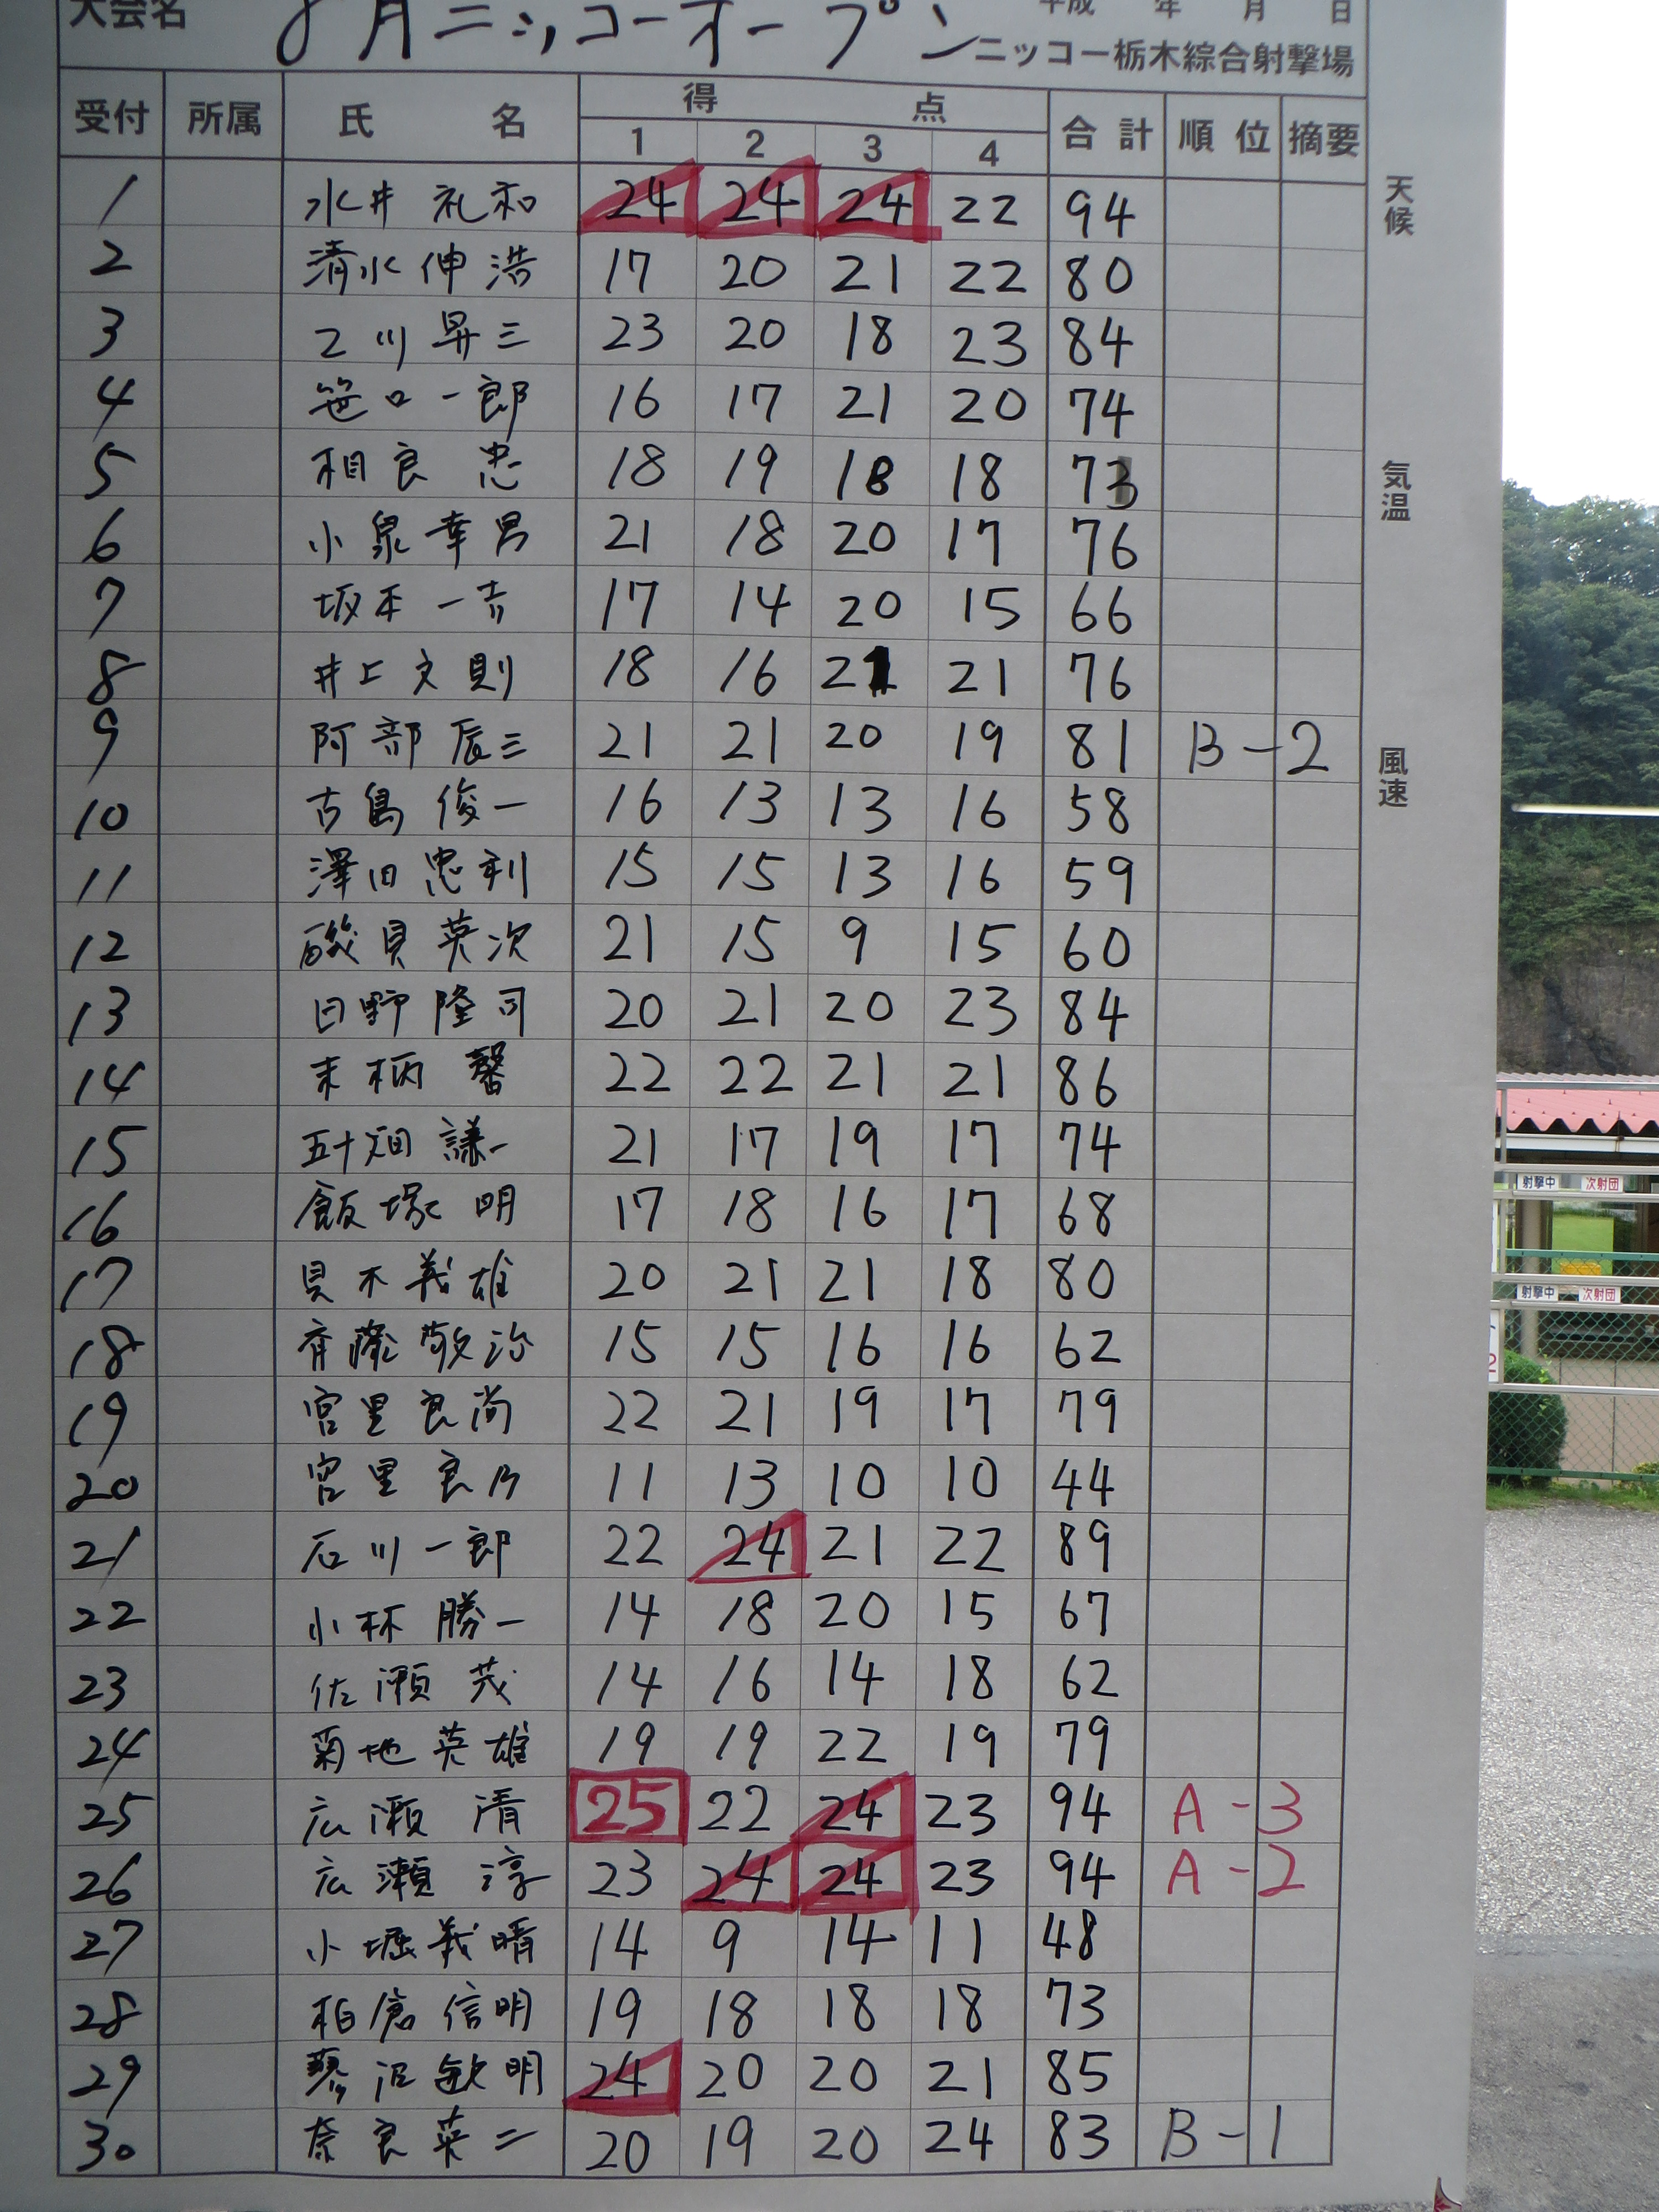 大会名 8月ニッコーオープン 平成 年 月 日
ニッコー栃木綜合射撃場
受付 所属 氏 名 得 点 合計 順位 摘要
1 2 3 4
1 水井 礼和 24 24 24 22 94
2 清水 伸浩 17 20 21 22 80
3 乙川 昇三 23 20 18 23 84
4 笹口一郎 16 17 21 20 74
5 相良 忠 18 19 18 18 73
6 小泉幸男 21 18 20 17 76
7 坂本一吉 17 14 20 15 66
8 井上文則 18 16 21 21 76
9 阿部辰三 21 21 20 19 81 B-2
10 古島俊一 16 13 13 16 58
11 澤田忠利 15 15 13 16 59
12 磯貝英次 21 15 9 15 60
13 日野隆司 20 21 20 23 84
14 末柄 馨 22 22 21 21 86
15 五十畑 謙一 21 17 19 17 74
16 飯塚 明 17 18 16 17 68
17 貝木義雄 20 21 21 18 80
18 斉藤敬治 15 15 16 16 62
19 宮里良尚 22 21 19 17 79
20 宮里良乃 11 13 10 10 44
21 石川一郎 22 24 21 22 89
22 小林勝一 14 18 20 15 67
23 佐瀬 茂 14 16 14 18 62
24 菊地英雄 19 19 22 19 79
25 広瀬 清 25 22 24 23 94 A-3
26 広瀬 淳 23 24 24 23 94 A-2
27 小堀義晴 14 9 14 11 48
28 柏倉信明 19 18 18 18 73
29 沼敏明 24 20 20 21 85
30 奈良英二 20 19 20 24 83 B-1
天候
気温
風速
射撃中 次射団
射撃中 次射団
2